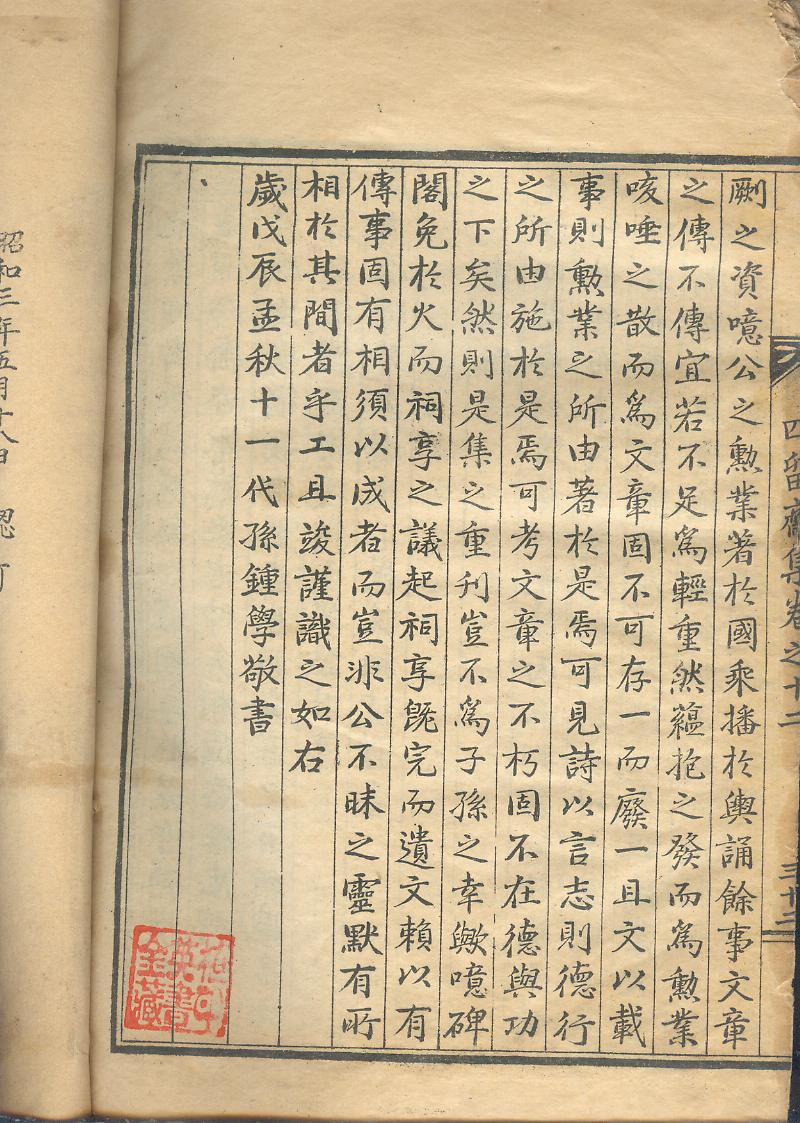 四留齋集卷之十二
三十三
劂之資噫公之勳業著於國乘播於輿誦餘事文章
之傳不傳宜若不足爲輕重然蘊抱之發而爲勳業
咳唾之散而爲文章固不可存一而廢一且文以載
事則勳業之所由著於是焉可見詩以言志則德行
之所由施於是焉可考文章之不朽固不在德與功
之下矣然則是集之重刊豈不爲子孫之幸歟噫碑
閣免於火而祠享之議起祠享旣完而遺文賴以有
傳事固有相須以成者而豈非公不昧之靈默有所
相於其間者乎工且竣謹識之如右
歲戊辰孟秋十一代孫鍾學敬書
昭和三年五月十八日